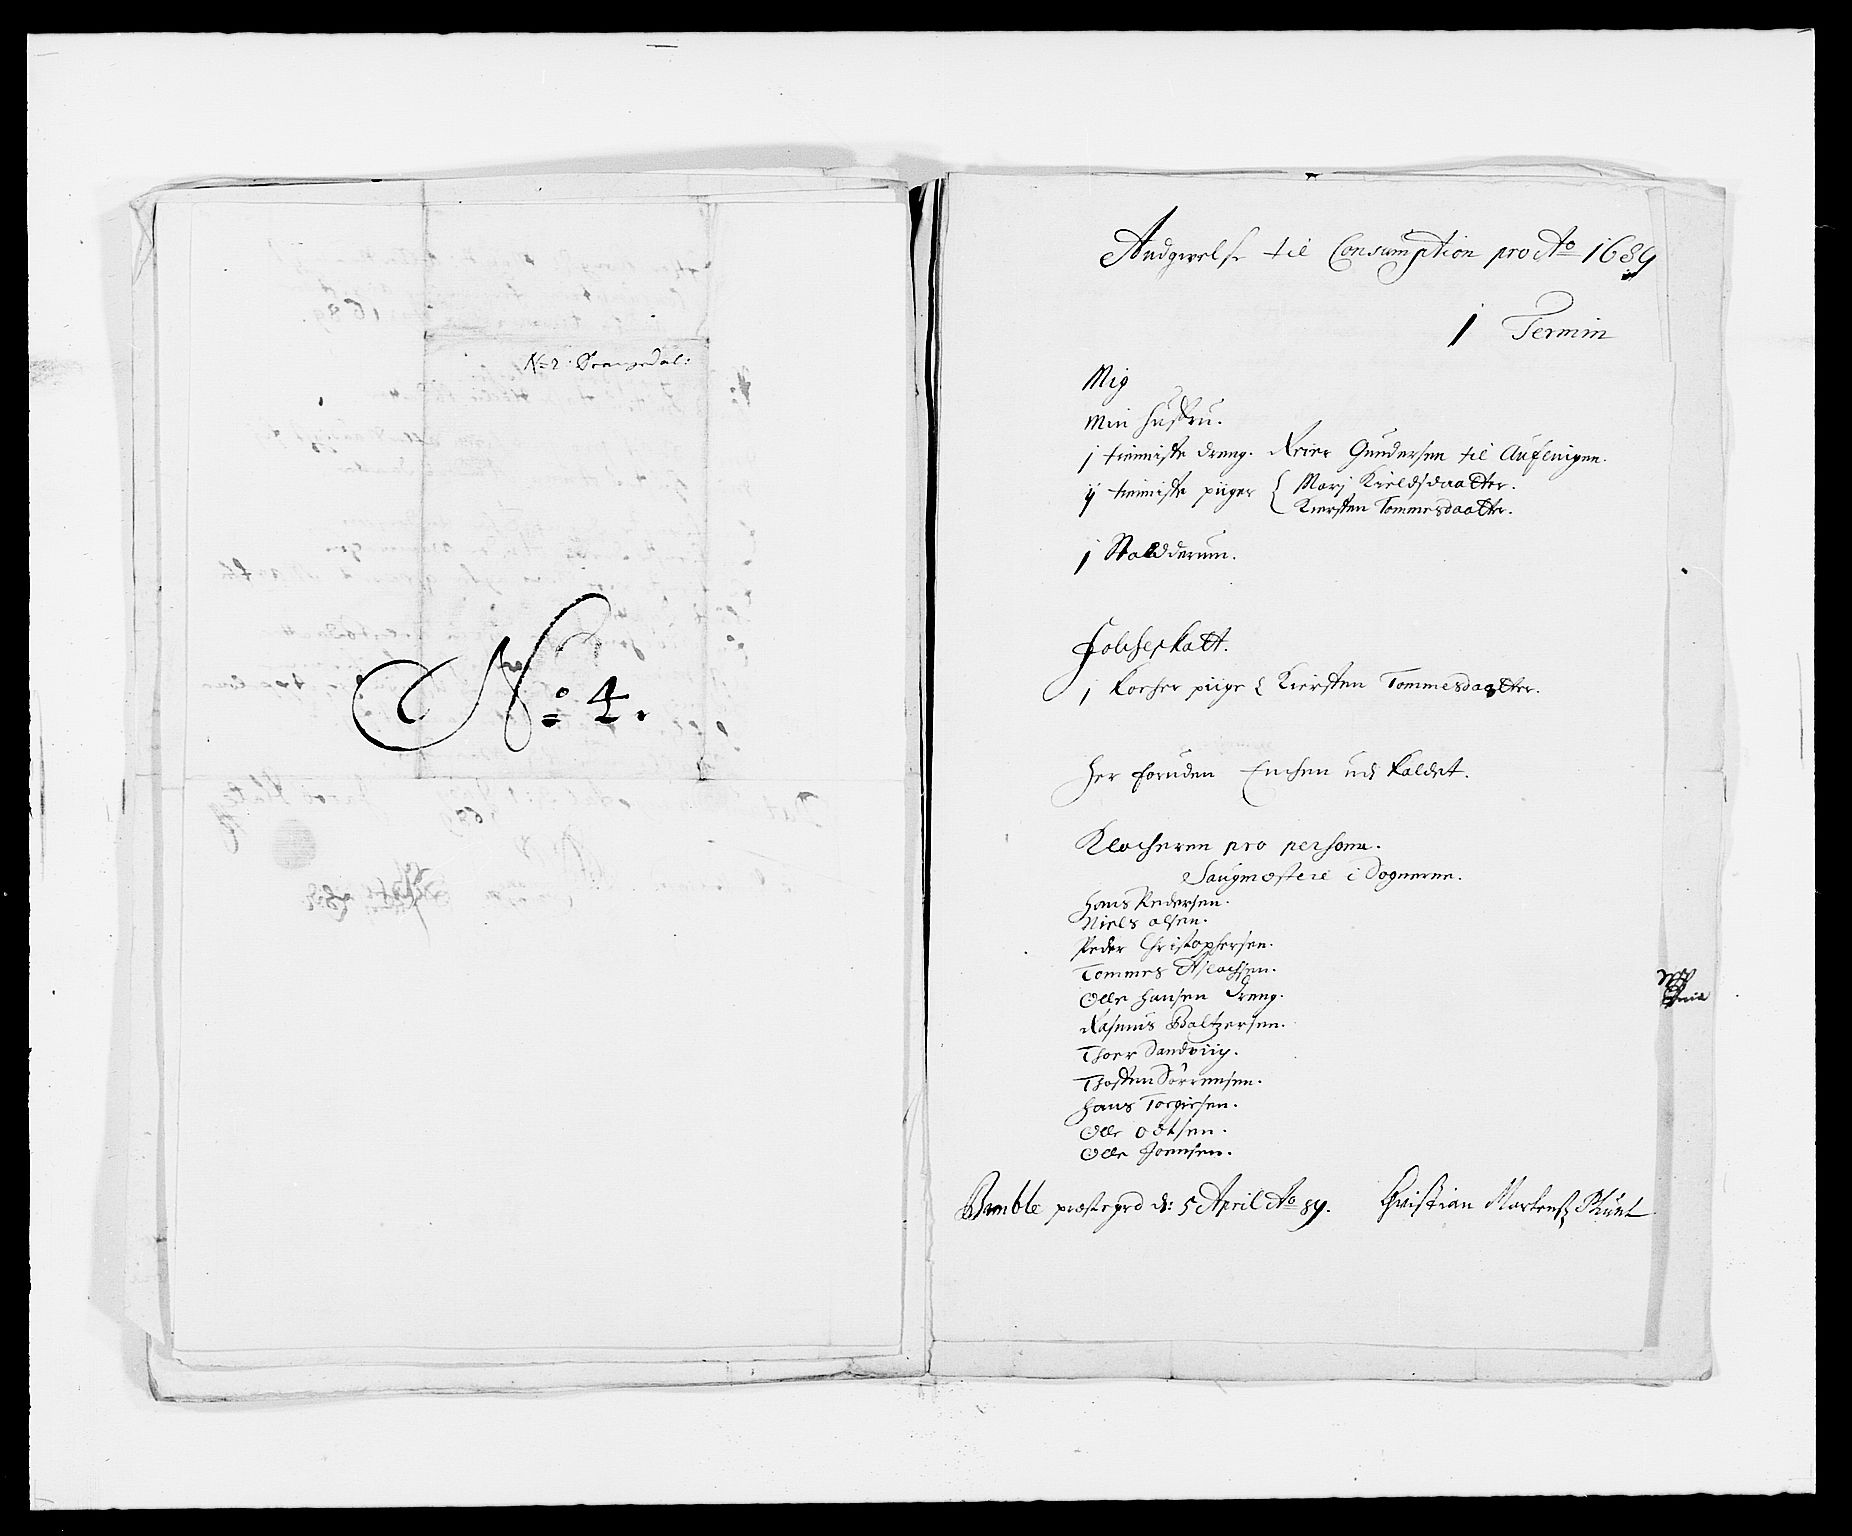 No 2. Drangedal:
No 4.
Andgivelse til Consumption pro Ao 1689
1 Termin
Mig
Min Hustru.
j tienniste dreng. Reier Gundersen til
ij tienniste piiger { Marj Kieldsdaatter.
Kiersten Tommesdaatter.
j Staldderum.
Folcheskatt.
j Kocher piige { Kiersten Tommesdaatter.
Her foruden Enchen udj Kaldet.
Klocheren pro persona.
Saugmestere i Sognene.
Hans Pedersen.
Niels olsen.
Peder Christophersen.
Tommes Aslachsen.
Olle Hansen Dreng.
Rasmus Baltzersen.
Thoer Sandviig.
Thosten Sörrensen.
Hans Torgiersen.
Olle odtsen.
Olle Joensen.
Bamble præstegrd d: 5 April Ao 89. Christian Martensz